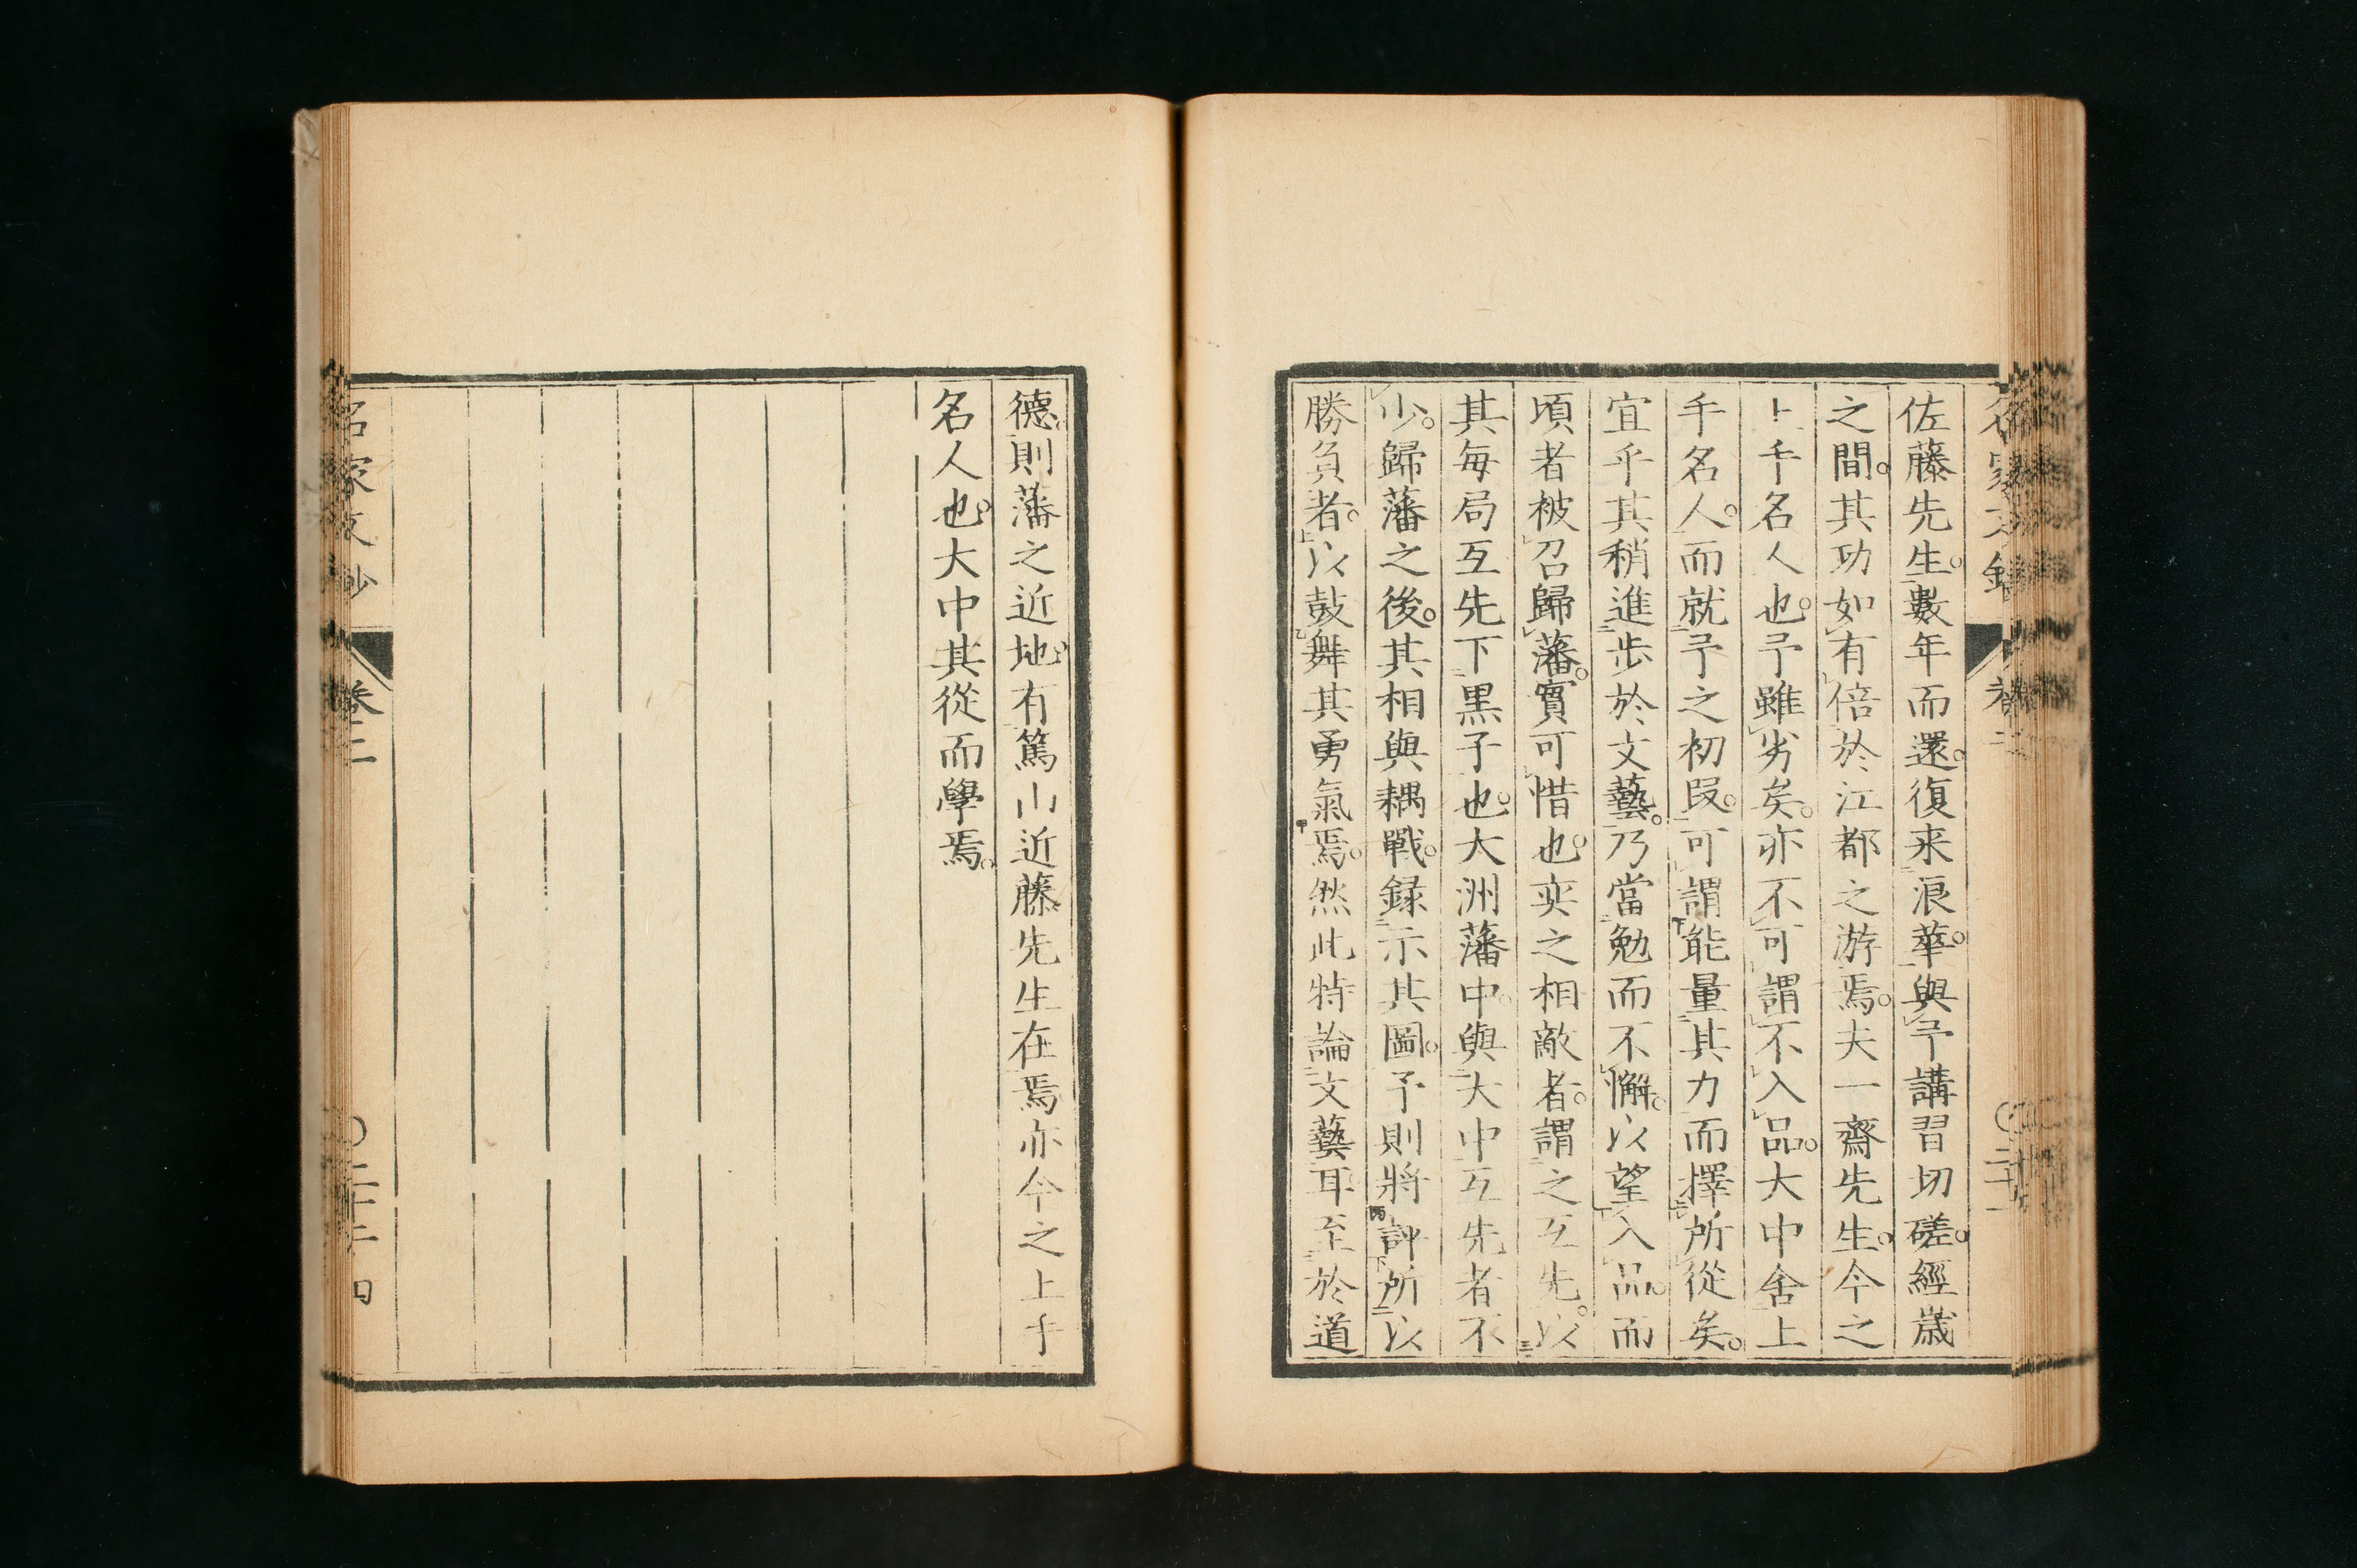 佐藤先生。數年而還。復来浪華。與予講習切磋。經歳
之間。其功如有倍於江都之游焉。夫一齋先生。今之
上手名人也。予雖劣矣。亦不可謂不入品。大中舍上
手名人。而就予之初段。可謂能量其力而擇所從矣。
宜乎其稍進步於文藝。乃當勉而不懈。以望入品。而
頃者被召歸藩。實可惜也。奕之相敵者。謂之互先。以
其每局互先下黒子也。大洲藩中。與大中互先者不
少。歸藩之後。其相與耦戰。録示其圖。予則將評所以
勝負者。以鼓舞其勇氣焉。然此特論文藝耳。至於道
德。則藩之近地。有篤山近藤先生在焉。亦今之上手
名人也。大中其從而學焉。
名家文抄 卷二